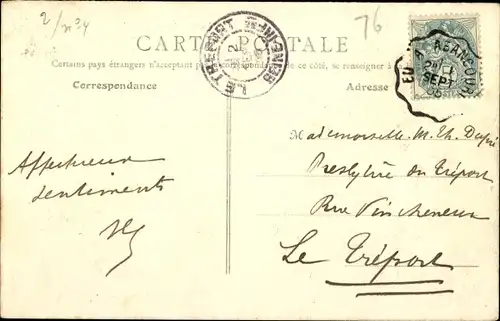 2
76
CARTE POSTALE
Certains pays étrangers n'acceptant pas la correspondance de ce côté, se renseigner à la
Correspondance
Adresse
LE TREPORT
SEINE-INFRE
EU
ABANCOURT
SEPT
Affectueux
sentiments
Mademoiselle M. Th. Dupré
Presbytère du Tréport
Rue Vincheneux
Le Tréport